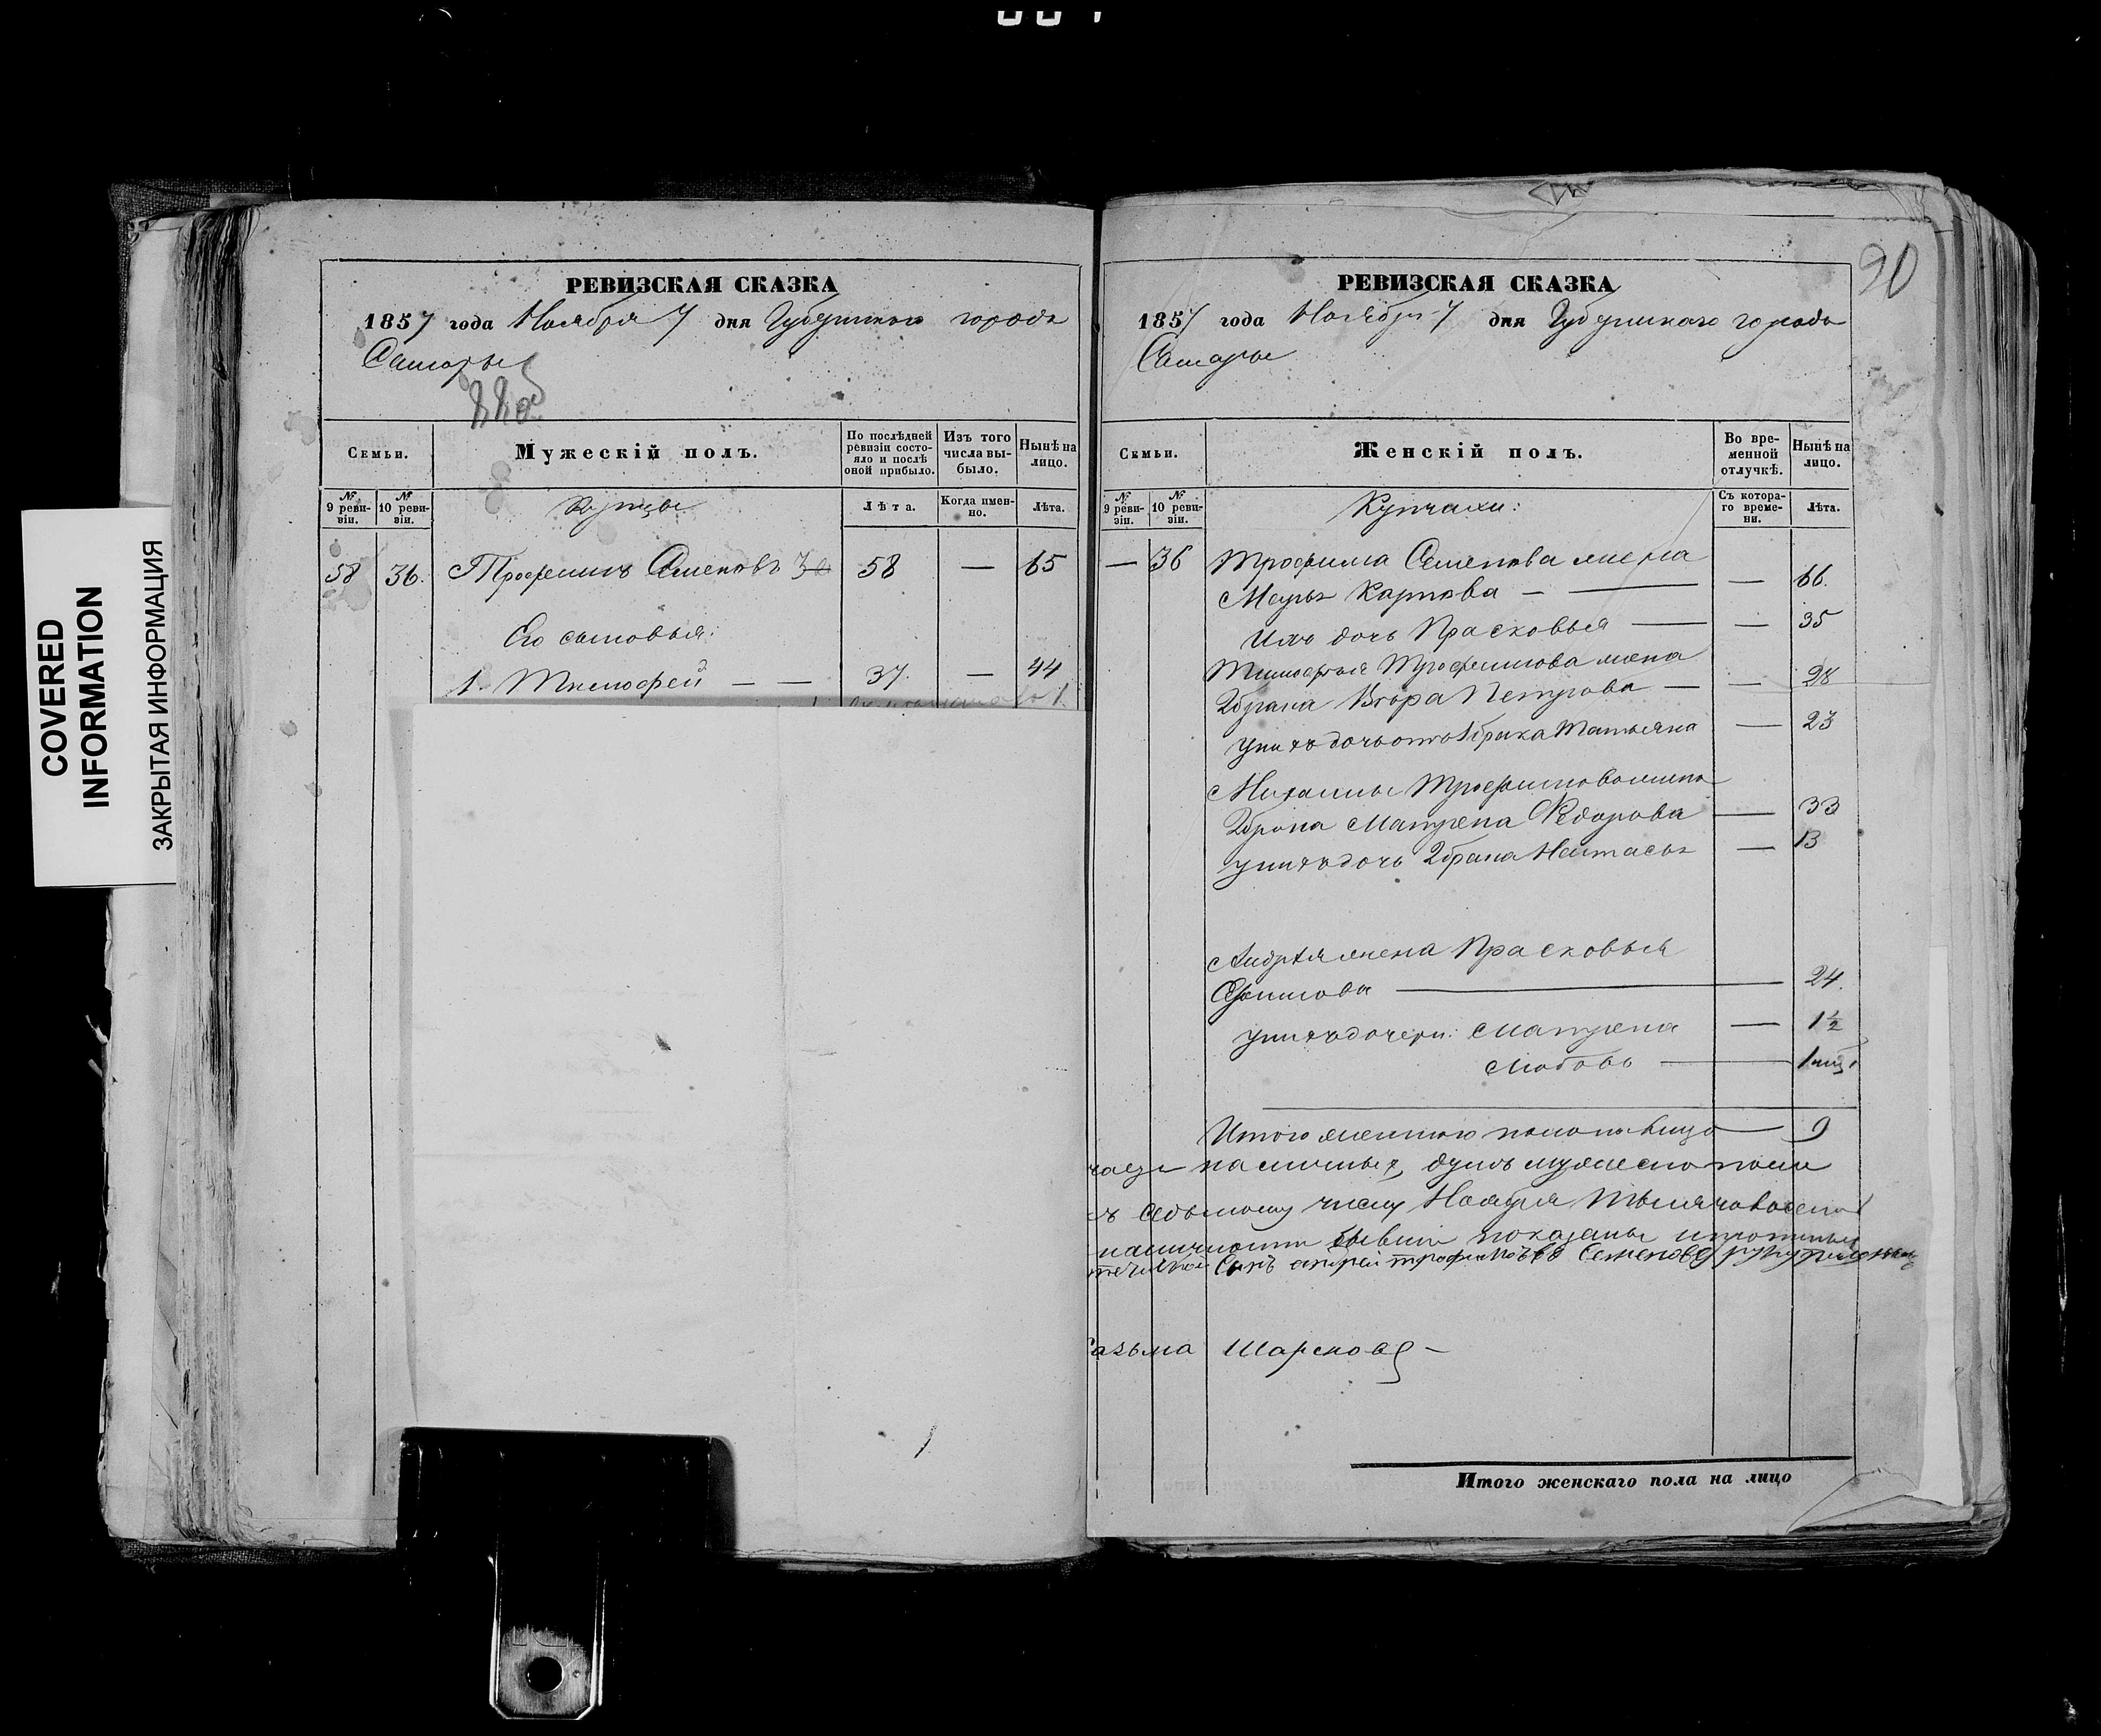 90
COVERED
INFORMATION
ЗАКРЫТАЯ ИНФОРМАЦИЯ
РЕВИЗСКАЯ СКАЗКА
1857 года Ноября 7 дня Губернскаго города
Самары
Семьи.
Мужескій полъ.
По послѣдней ревизіи состояло и послѣ оной прибыло.
Изъ того числа выбыло.
Нынѣ на лицо.
№ 9 ревизіи.
№ 10 ревизіи.
Купцы
Лѣта.
Когда именно.
Лѣта.
58 36. Трофимъ Семеновъ 58 — 65
Его сыновья:
1. Тимофей — — 37. — 44
РЕВИЗСКАЯ СКАЗКА
1857 года Ноября 7 дня Губернскаго города
Самары
Семьи.
Женскій полъ.
Во временной отлучкѣ.
Нынѣ на лицо.
№ 9 ревизіи.
№ 10 ревизіи.
Купчихи:
Съ котораго времени.
Лѣта.
— 36 Трофима Семенова жена
Марья Карпова — — 66.
Ихъ дочь Прасковья — — 35
Тимофея Трофимова жена
2 брака Вѣра Петрова — — 28
у них дочь от 1 брака Татьяна — 23
Михаилы Трофимова жена
2 брака Матрена Федорова — 33
у них дочь 2 брака Настасья — 13
Андрея жена Прасковья
Ефимова — 24.
у них дочери: Матрена — 1½
Любовь —
Итого женскаго пола на лицо — 9
наличныхъ душъ мужеска пола
седьмому числу Ноября
наличности бывши показаны
Сынъ андрей трофимовъ Семеновъ
Шарсковъ —
Итого женскаго пола на лицо